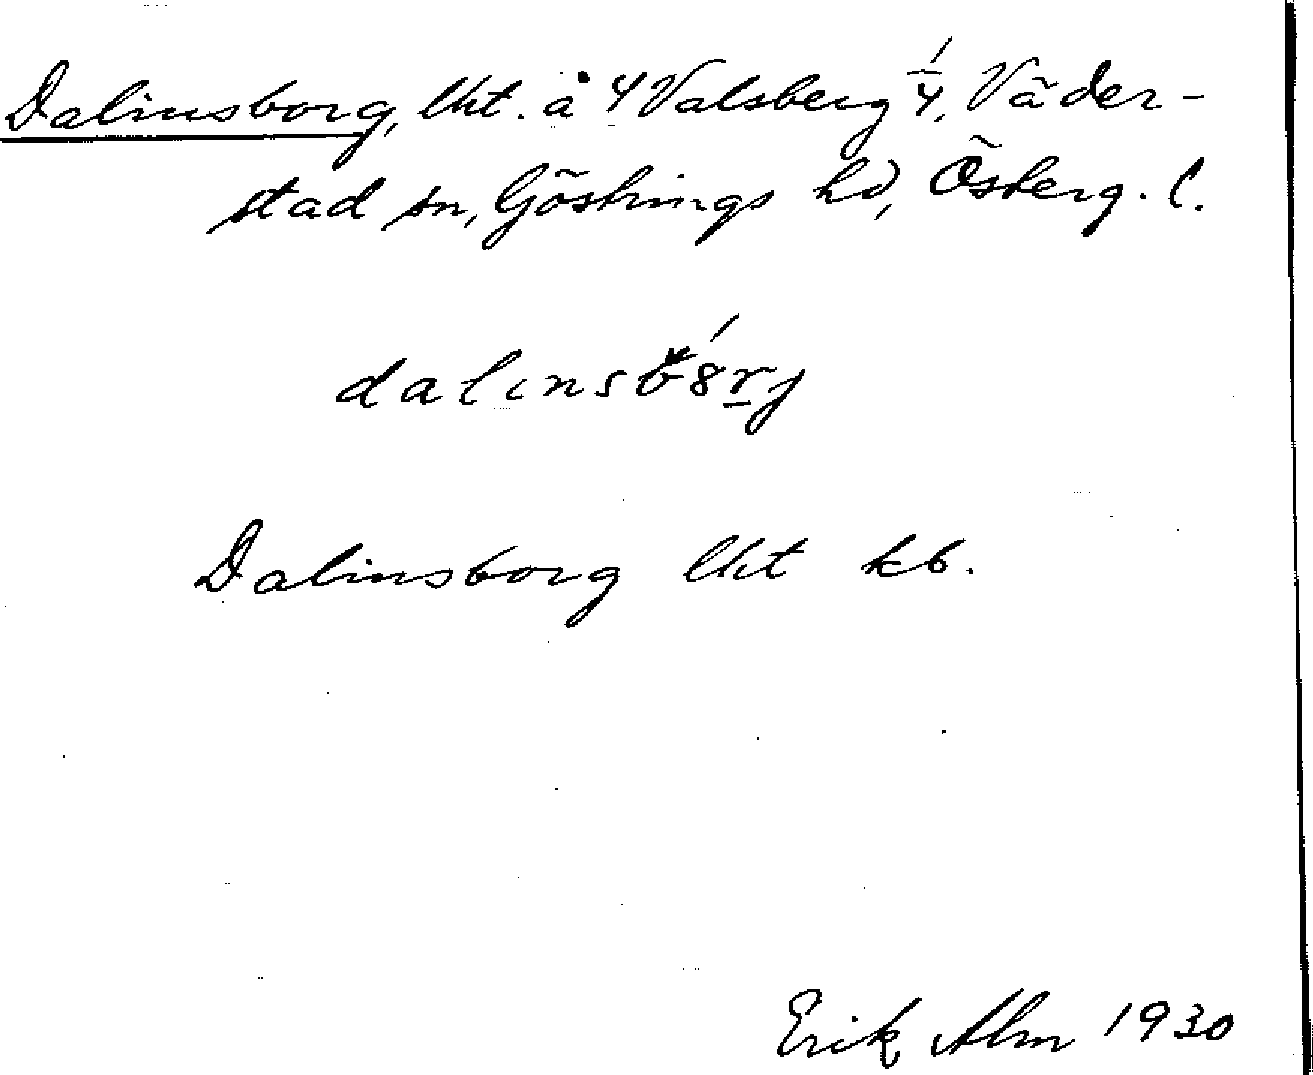 Dalinsborg, lht. å 4 Valsberg 1/4, Väder-
stad sn, Göstrings hd, Österg. l.
dalinsb8rj
Dalinsborg lht kb.
Erik Alm 1930